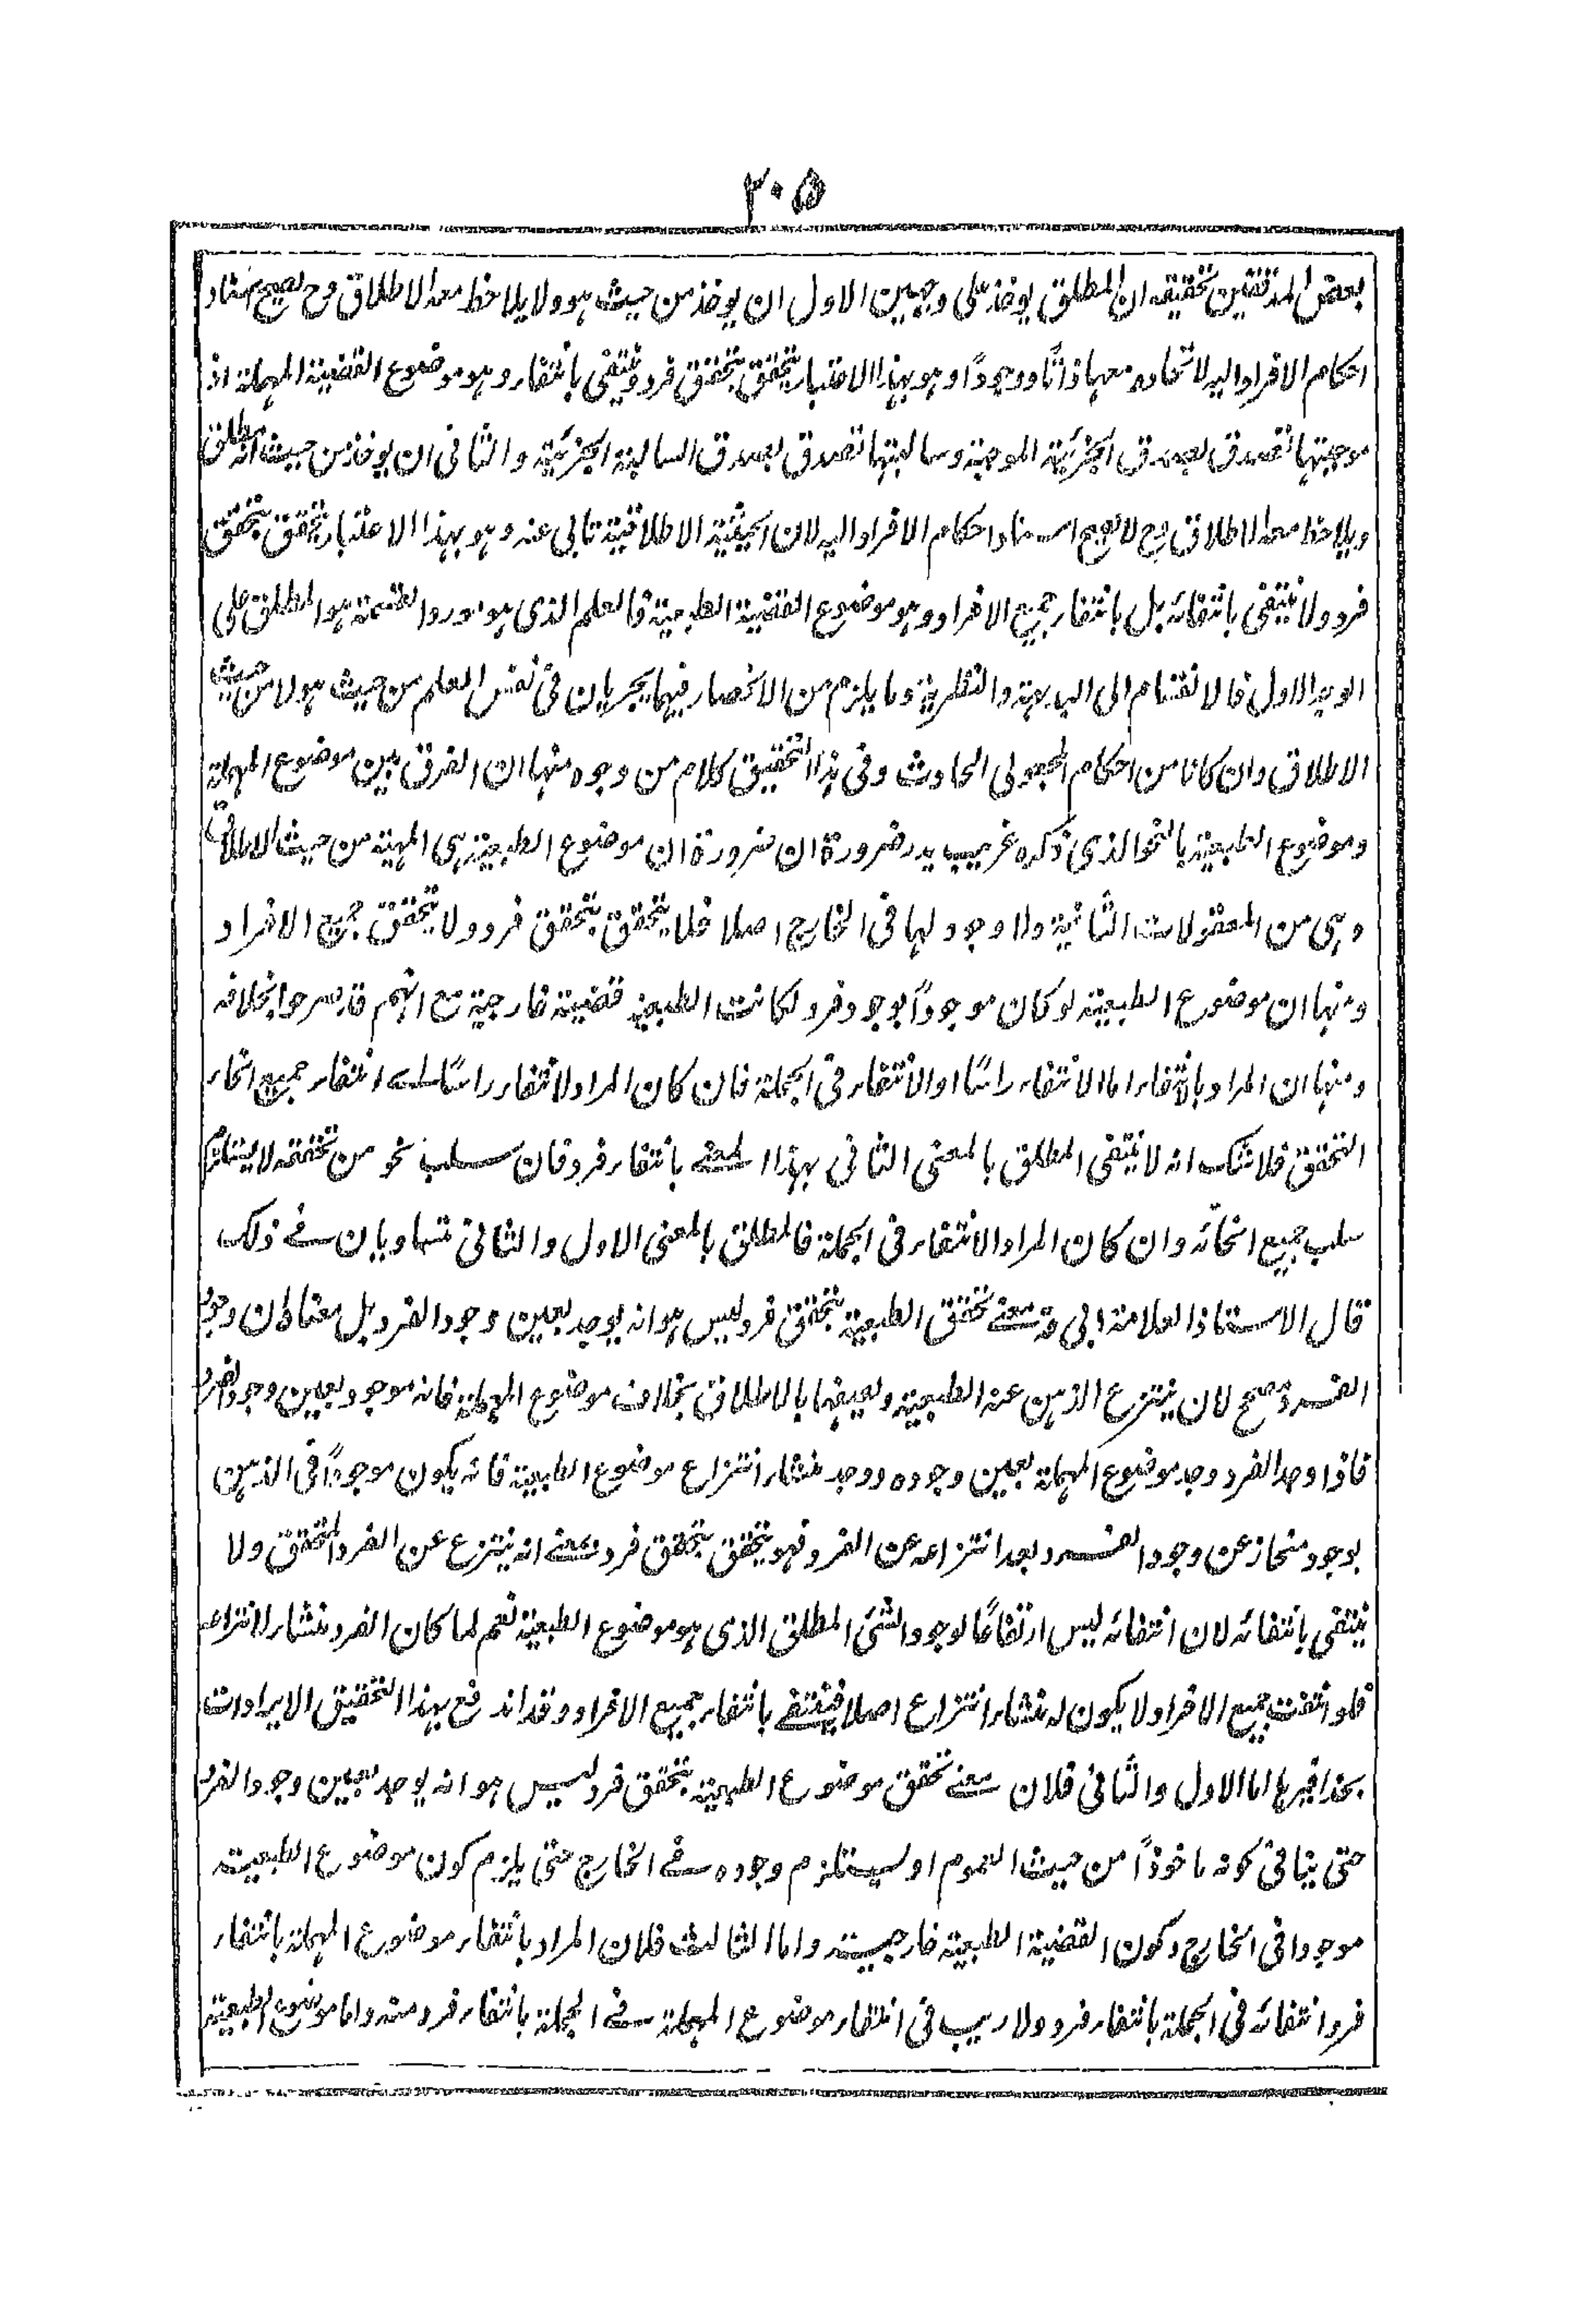 ٣٠٥
بعض المدققين تحقيقه ان المطلق يوخذ على وجهين الاول ان يوخذ من حيث هو ولا يلاحظ معه الاطلاق وح يصح اسناد
احكام الافراد اليه لاتحاده معها ذاتًا ووجودًا وهو بهذا الاعتبار يتحقق بتحقق فرد وينتفى بانتفاء وهو موضوع القضية المهملة اذ
موجبتها تصدق بصدق الجزئية الموجبة وسالبتها تصدق بصدق السالبة الجزئية والثانى ان يوخذ من حيث انه مطلق
ويلاحظ معه الاطلاق وح لا يصح اسناد احكام الافراد اليه لان الحيثية الاطلاقية تابى عنه وهو بهذا الاعتبار يتحقق بتحقق
فرد ولا ينتفى بانتفائه بل بانتفاء جميع الافراد وهو موضوع القضية الطبعية فالعلم الذى هو مورد القسمة هو المطلق على
الوجه الاول فالانقسام الى البديهة والنظرية وما يلزم من الانحصار فيهما يجريان فى نفس العلم من حيث هو لا من حيث
الاطلاق وان كانا من احكام المجعولى الحادث وفى هذا التحقيق كلام من وجوه منها ان الفرق بين موضوع المهملة
وموضوع الطبعية بالنحو الذى ذكره غريب يدر ضرورة ان ضرورة ان موضوع الطبعية هى المهية من حيث الاطلاق
وهى من المعقولات الثانية ولا وجود لها فى الخارج اصلا فلا يتحقق بتحقق فرد ولا يتحقق جميع الافراد
ومنها ان موضوع الطبعية لو كان موجودًا بوجود فرد لكانت الطبعية قضية خارجية مع انهم قد صرحوا بخلافه
ومنها ان المراد بانتفاء اما الانتفاء راسًا او الانتفاء فى الجملة فان كان المراد لانتفاء راسًا اے انتفاء جميع انحاء
التحقق فلا شك انه لا ينتفى المطلق بالمعنى الثانى بهذا المعنے بانتفاء فرد فان سلب نحو من تحققه لا يستلزم
سلب جميع انحائه وان كان المراد الانتفاء فى الجملة فالمطلق بالمعنى الاول والثانى متساويان فے ذلك
قال الاستاذ العلامة ابى قد معنے تحقق الطبعية بتحقق فرد ليس هو انه يوجد بعين وجود الفرد بل معناه ان وجود
الفرد مصحح لان ينتزع الذهن عنه الطبعية ويصفها بالاطلاق بخلاف موضوع المهملة فانه موجود بعين وجود الفرد
فاذا وجد الفرد وجد موضوع المهملة بعين وجوده ووجد منشاء انتزاع موضوع الطبعية فانه يكون موجودًا فى الذهن
بوجود منحاز عن وجود الفرد بعد انتزاعه عن الفرد فهو يتحقق بتحقق فرد بمعنے انه ينتزع عن الفرد المتحقق ولا
ينتفى بانتفائه لان انتفائه ليس ارتفاعًا لوجود الشئ المطلق الذى هو موضوع الطبعية نعم لما كان الفرد منشاء لانتزاعه
فلو انتفت جميع الافراد لا يكون له منشاء انتزاع اصلا فينتفے بانتفاء جميع الافراد وقد اندفع بهذا التحقيق الايرادات
بحذافيرها اما الاول والثانى فلان معنے تحقق موضوع الطبعية بتحقق فرد ليس هو انه يوجد بعين وجود الفرد
حتى ينافى كونه ماخوذًا من حيث العموم او يستلزم وجوده فے الخارج حتى يلزم كون موضوع الطبعية
موجودا فى الخارج وكون القضية الطبعية خارجية واما الثالث فلان المراد بانتفاء موضوع المهملة بانتفاء
فرد انتفائه فى الجملة بانتفاء فرد ولا ريب فى انتفاء موضوع المهملة فے الجملة بانتفاء فرد منه واما موضوع الطبعية